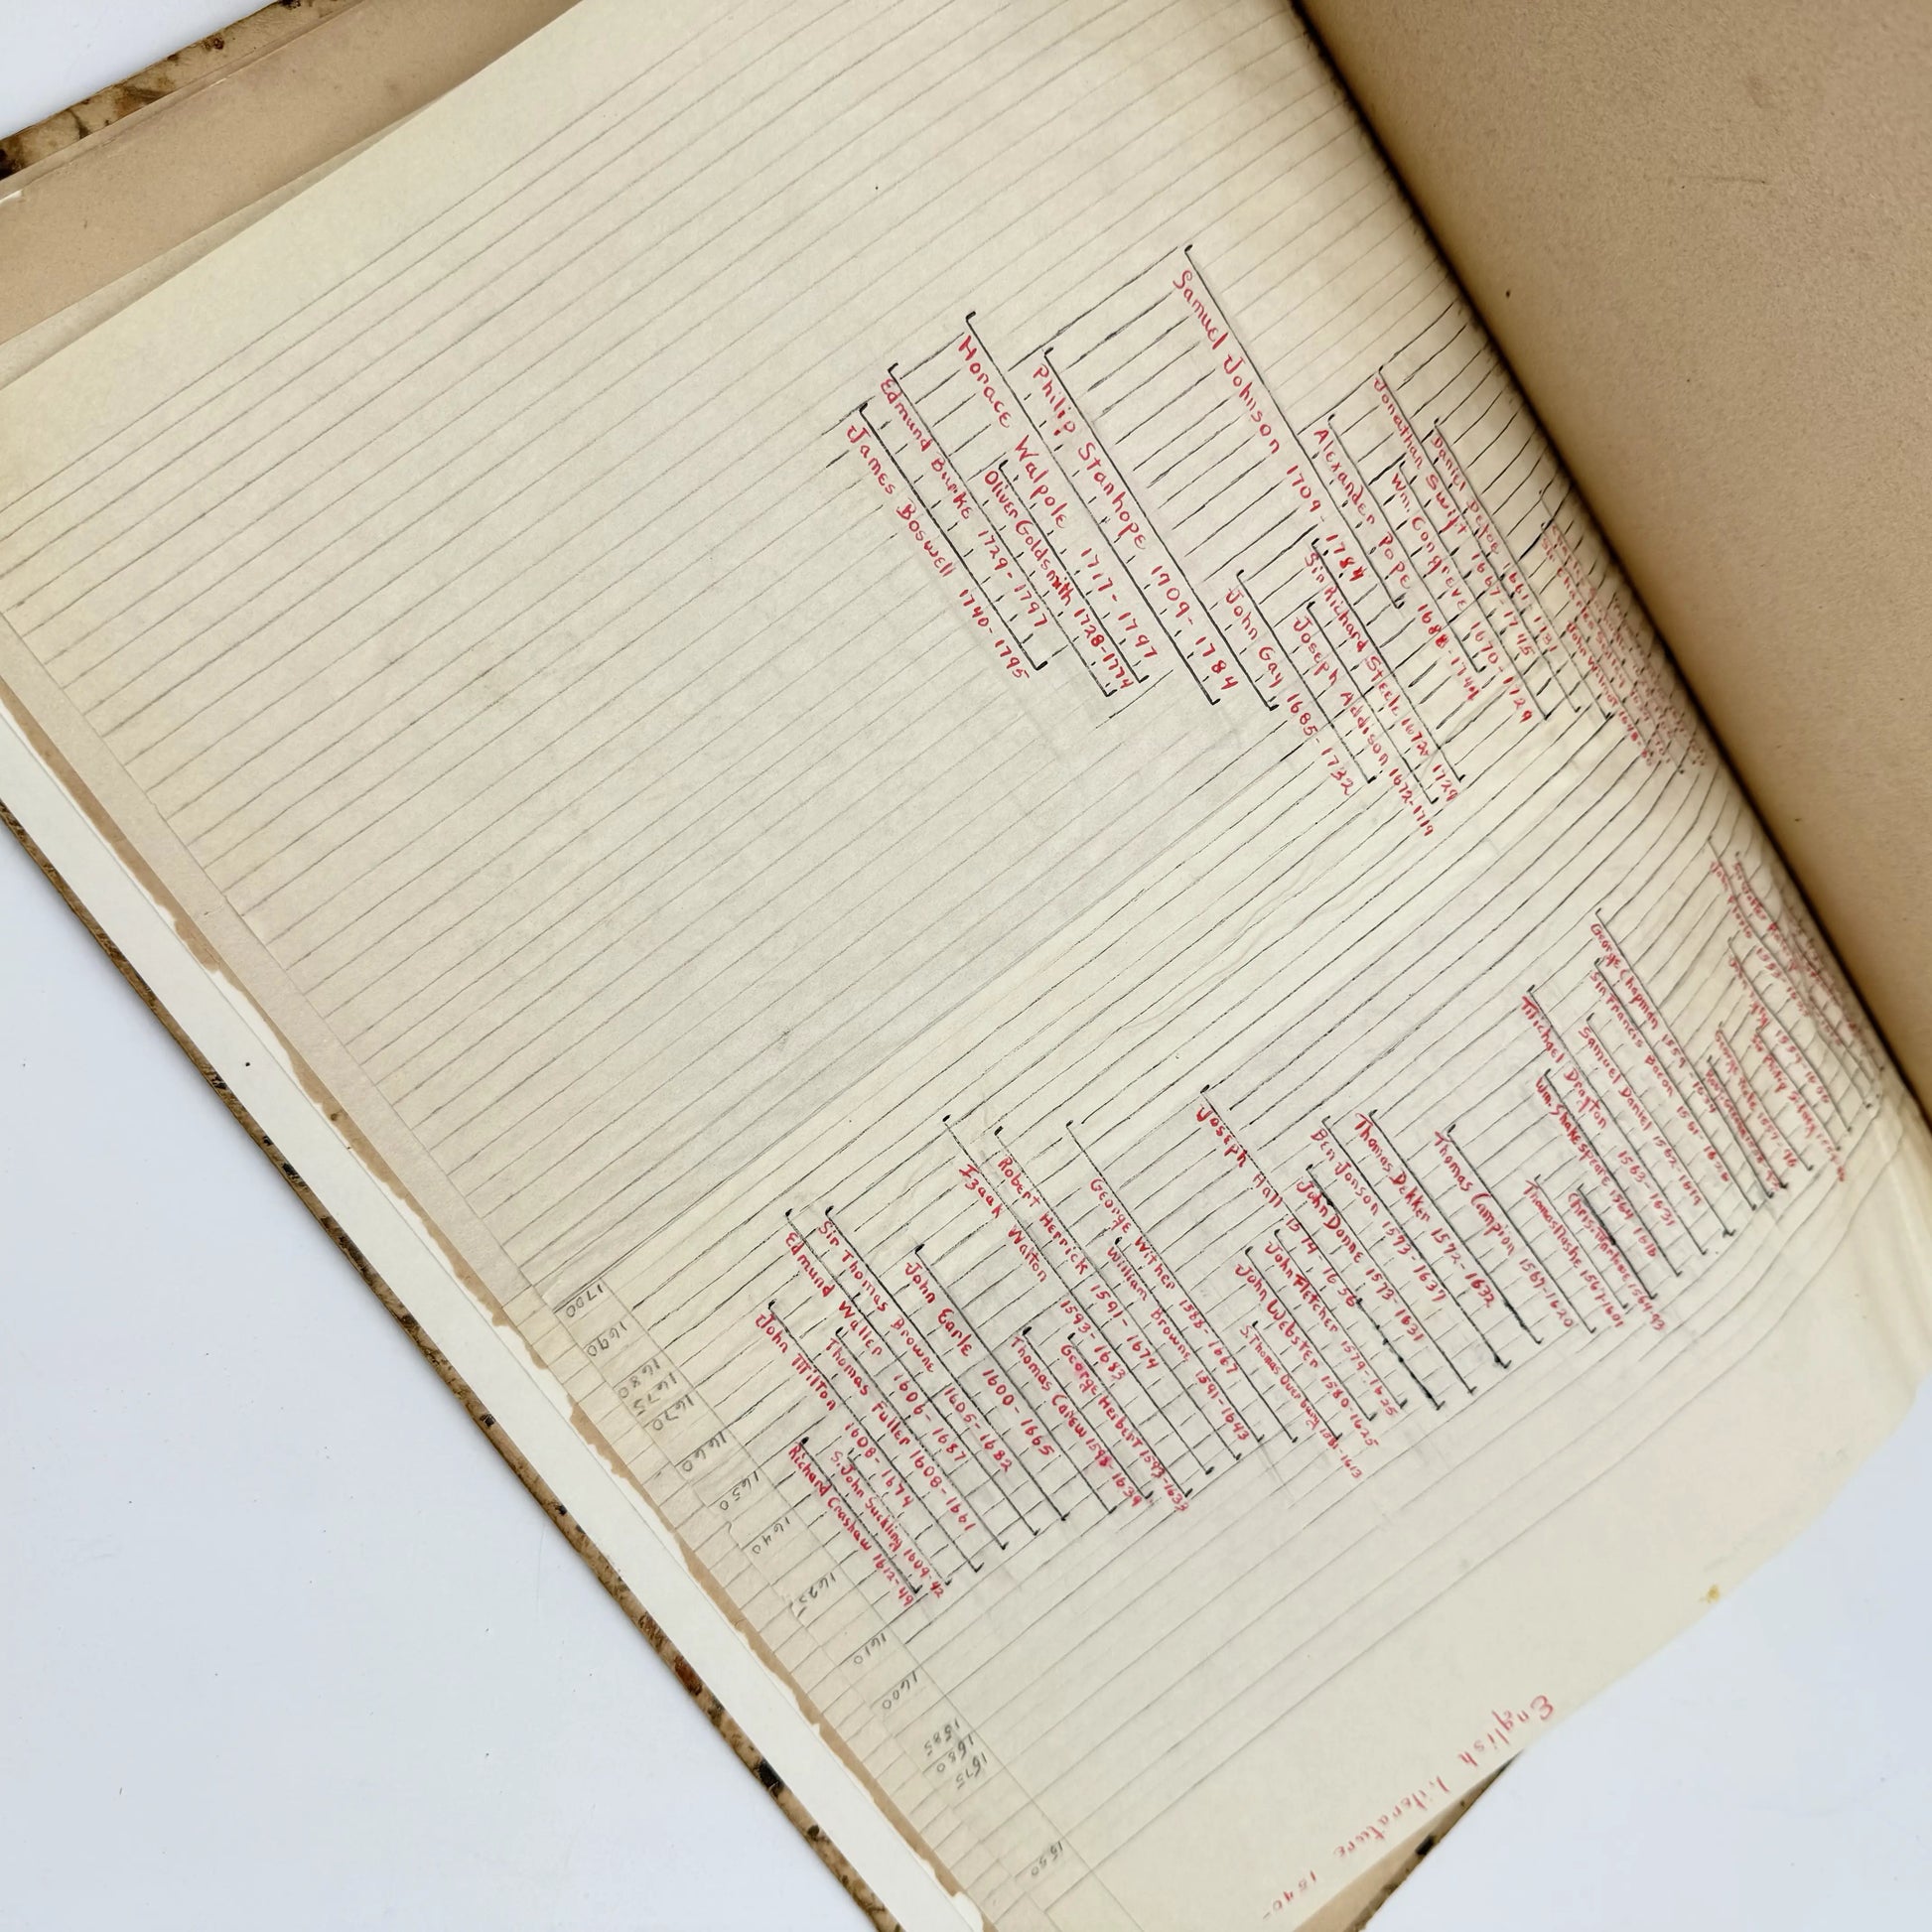 English Literature 1540-
Samuel Johnson 1709-1784
Philip Stanhope 1709-1784
Horace Walpole 1717-1797
Oliver Goldsmith 1728-1774
Edmund Burke 1729-1797
James Boswell 1740-1795
Daniel Defoe 1661-1731
Jonathan Swift 1667-1745
Wm. Congreve 1670-1729
Alexander Pope 1688-1744
Sir Richard Steele 1672-1729
Joseph Addison 1672-1719
John Gay 1685-1732
George Chapman 1559-1634
Sir Francis Bacon 1561-1626
Samuel Daniel 1562-1619
Michael Drayton 1563-1631
Wm. Shakespeare 1564-1616
Chris. Marlowe 1564-93
Thomas Nashe 1567-1601
Thomas Campion 1567-1620
Thomas Dekker 1572-1632
Ben Jonson 1573-1637
John Donne 1573-1631
Joseph Hall 1574-1656
John Fletcher 1579-1625
John Webster 1580-1625
S. Thomas Overbury 1581-1613
George Wither 1588-1667
William Browne 1591-1643
Robert Herrick 1591-1674
Izaak Walton 1593-1683
George Herbert 1593-1633
Thomas Carew 1598-1639
John Earle 1600-1665
Sir Thomas Browne 1605-1682
Edmund Waller 1606-1687
Thomas Fuller 1608-1661
John Milton 1608-1674
S. John Suckling 1609-42
Richard Crashaw 1612-49
1700
1690
1680
1675
1670
1660
1650
1640
1625
1610
1600
1585
1580
1575
1550